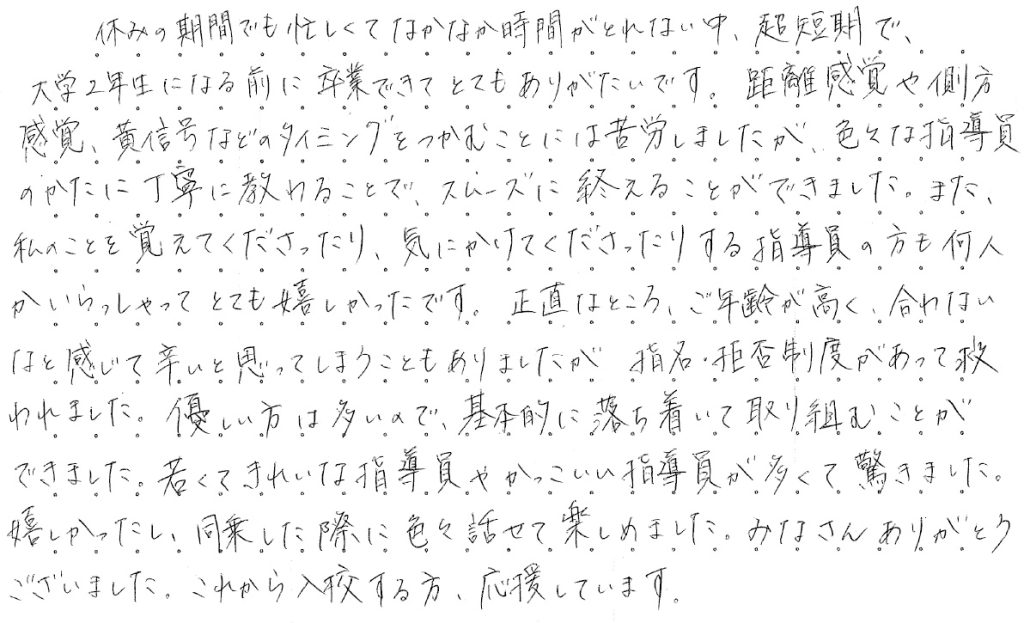 休みの期間でも忙しくてなかなか時間がとれない中、超短期で、
大学2年生になる前に卒業できてとてもありがたいです。距離感覚や側方
感覚、黄信号などのタイミングをつかむことには苦労しましたが、色々な指導員
のかたに丁寧に教わることで、スムーズに終えることができました。また、
私のことを覚えてくださったり、気にかけてくださったりする指導員の方も何人
かいらっしゃってとても嬉しかったです。正直なところ、ご年齢が高く、合わない
なと感じて辛いと思ってしまうこともありましたが 指名・拒否制度があって救
われました。優しい方は多いので、基本的に落ち着いて取り組むことが
できました。若くてきれいな指導員やかっこいい指導員が多くて驚きました。
嬉しかったし、同乗した際に色々話せて楽しめました。みなさんありがとう
ございました。これから入校する方、応援しています。